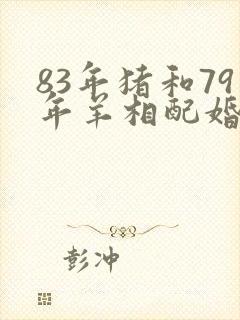 83年猪和79
年羊相配婚
彭冲